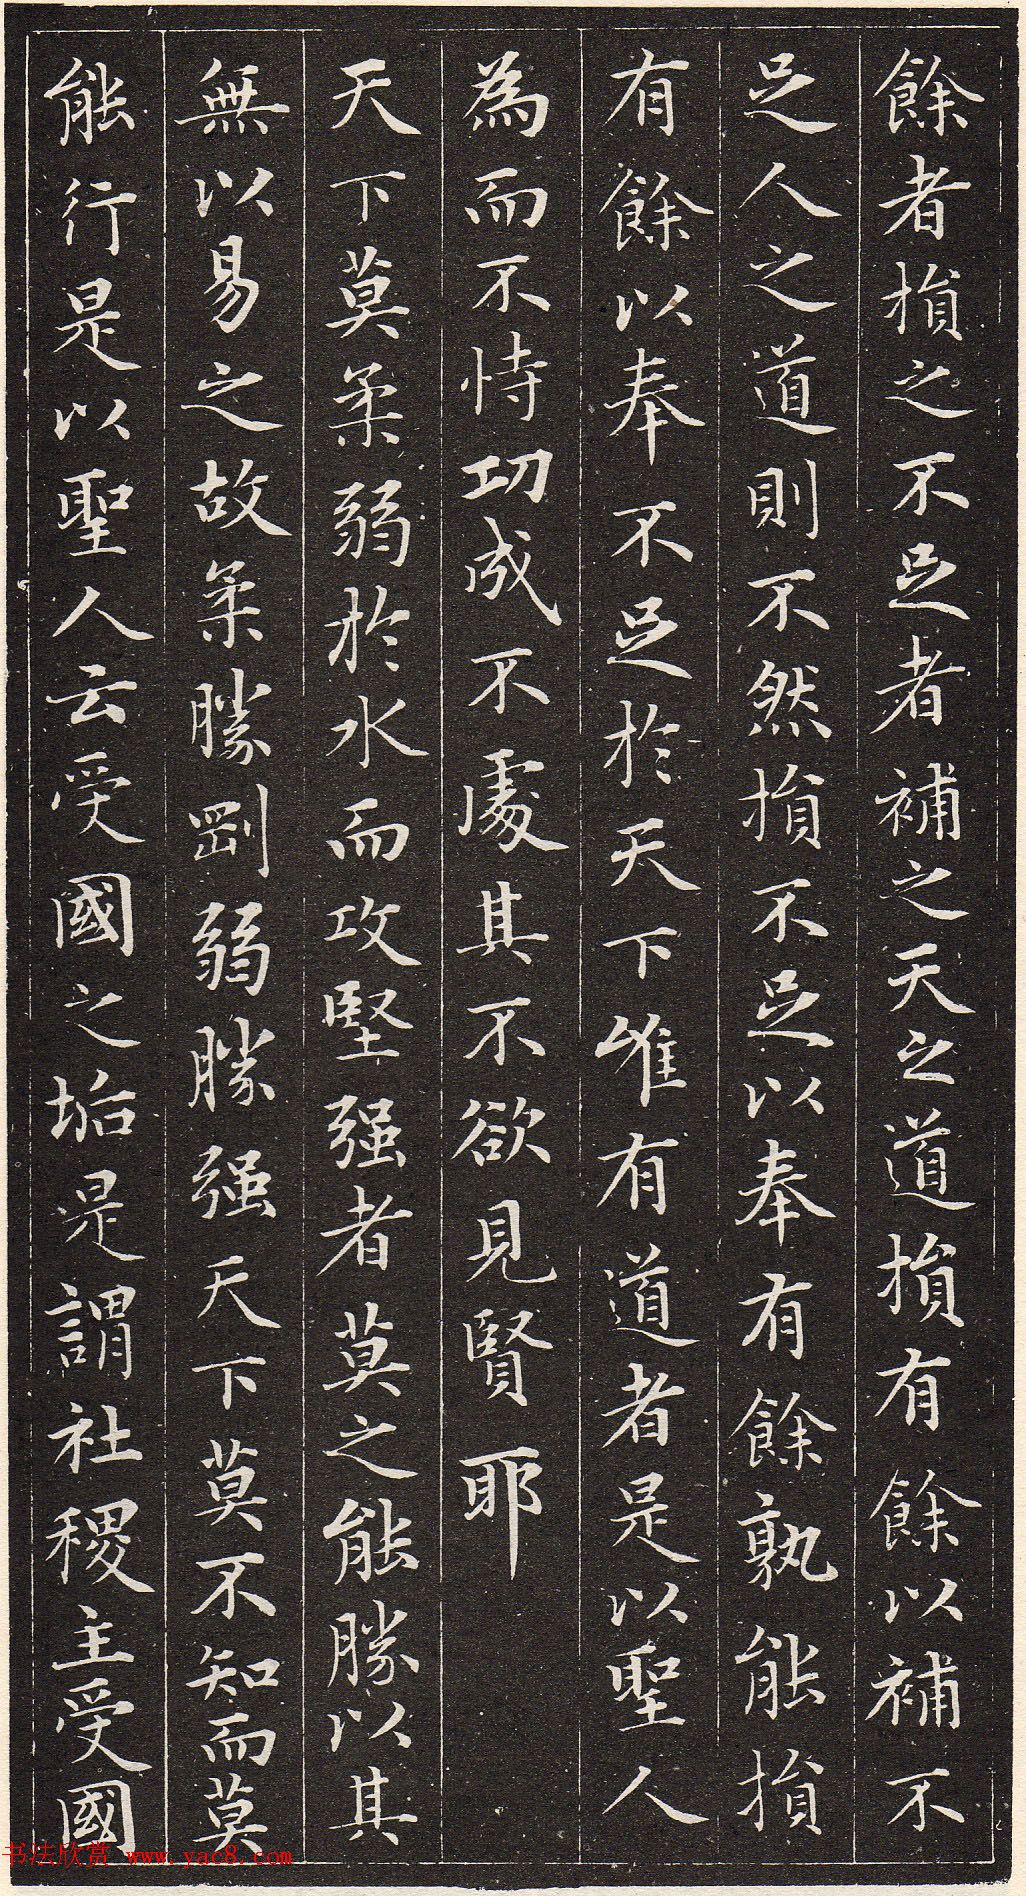 餘者損之不足者補之天之道損有餘以補不
足人之道則不然損不足以奉有餘孰能損
有餘以奉不足於天下唯有道者是以聖人
為而不恃功成不處其不欲見賢耶
天下莫柔弱於水而攻堅强者莫之能勝以其
無以易之故柔勝剛弱勝强天下莫不知而莫
能行是以聖人云受國之垢是謂社稷主受國
书法欣赏 www.yac8.com